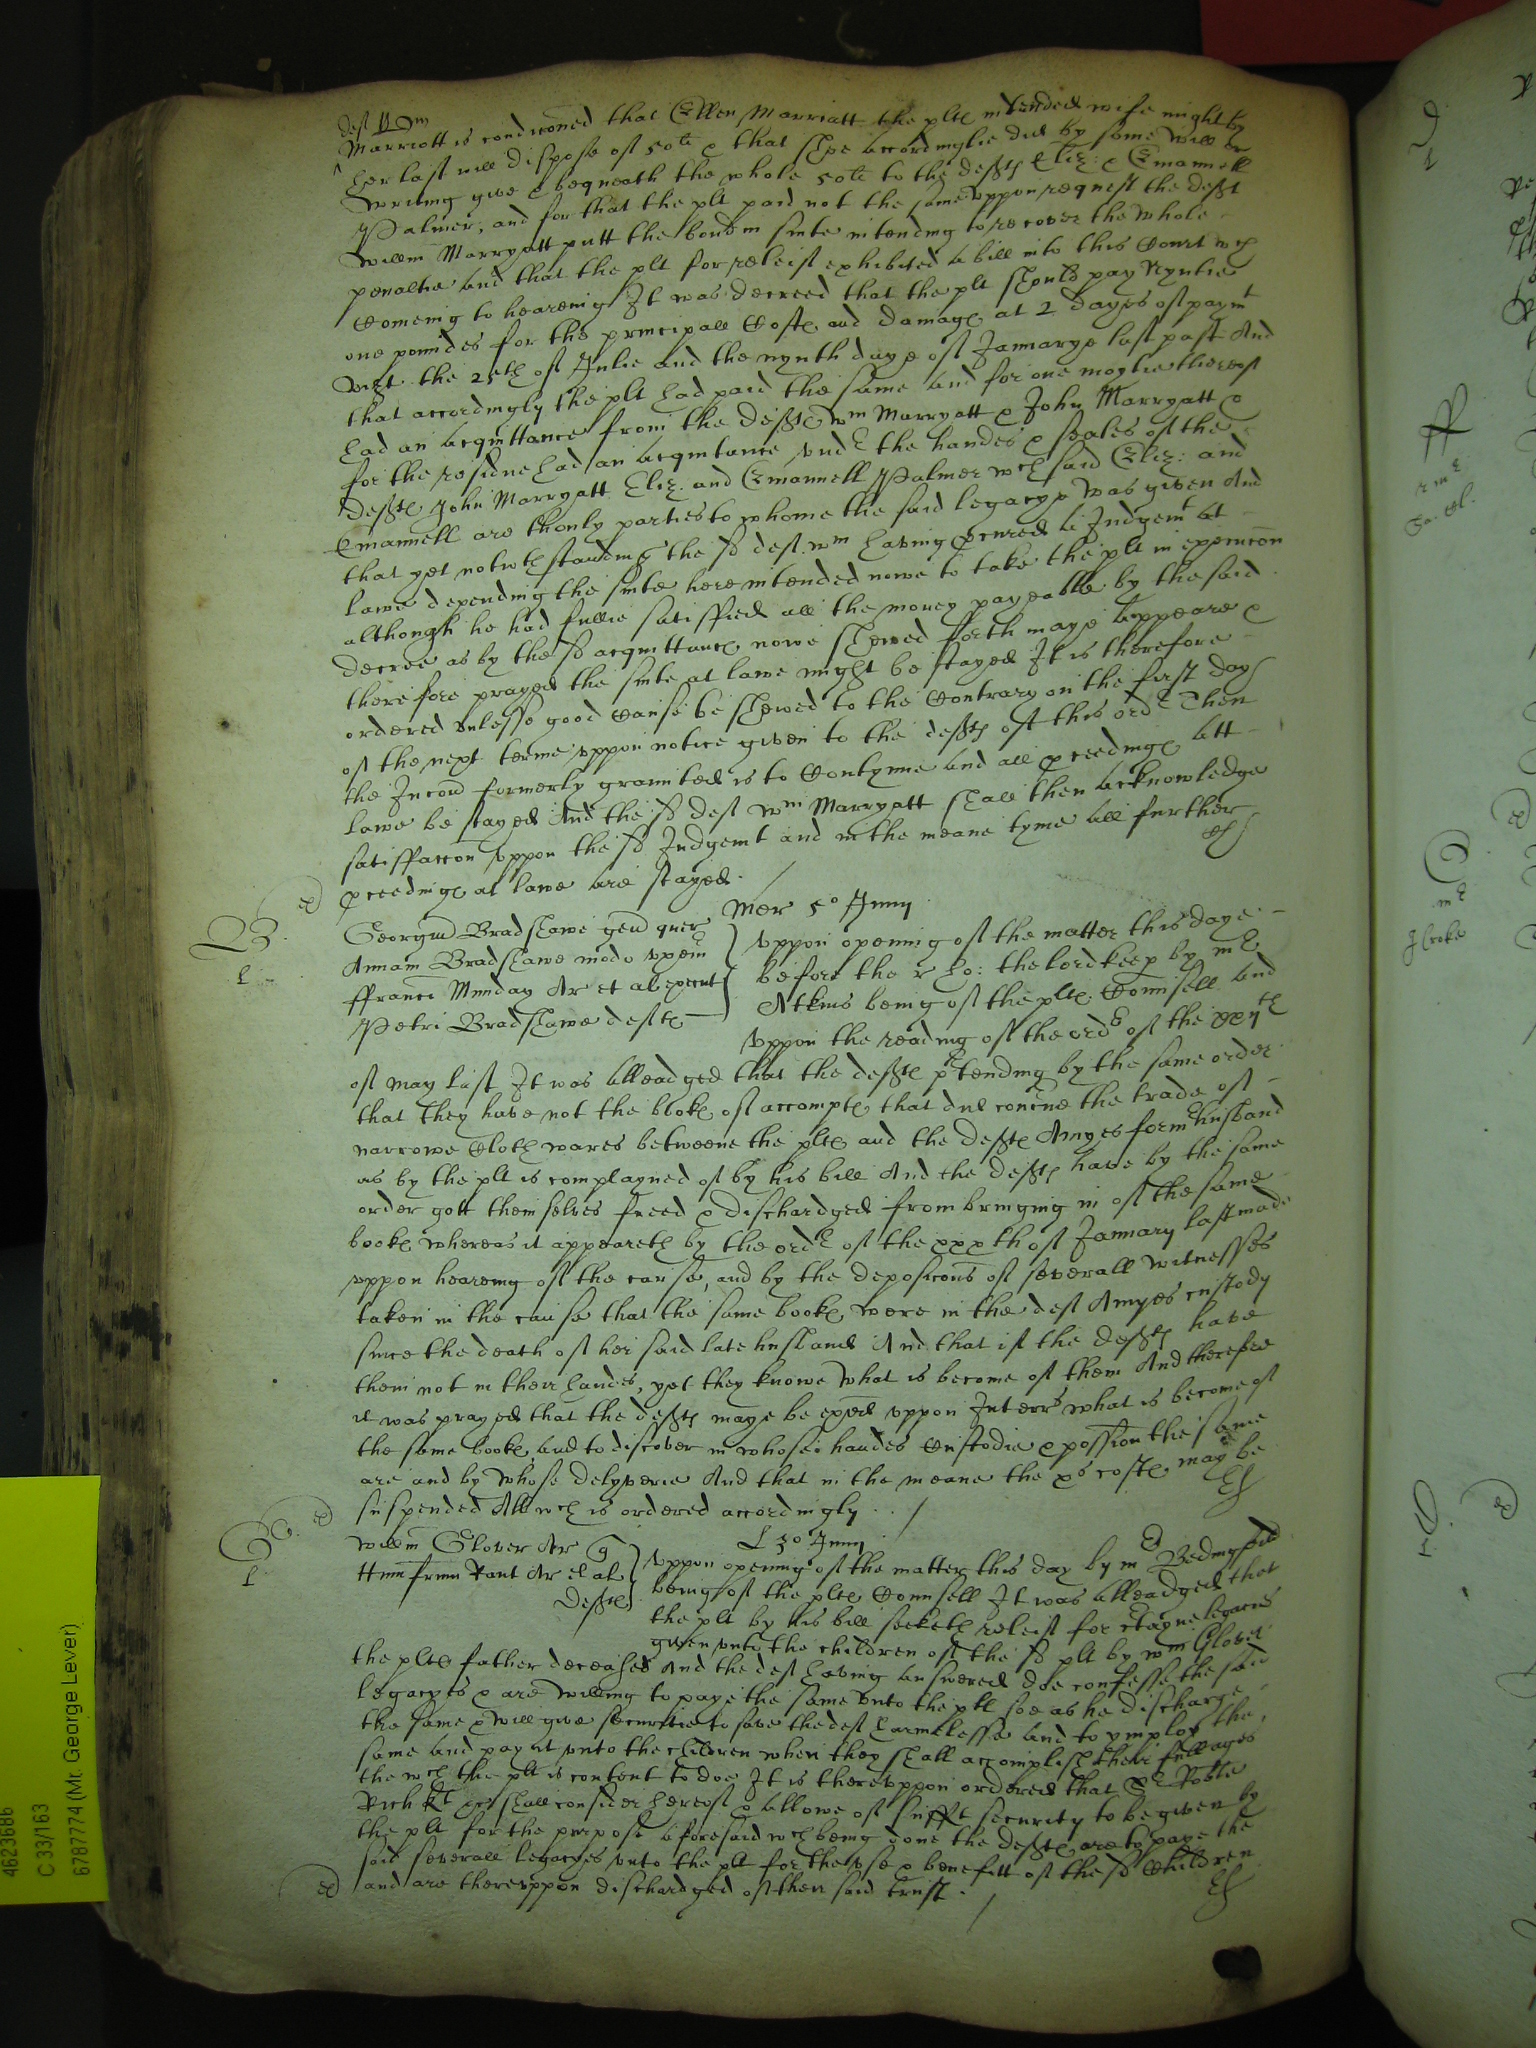 deft Wm
Marriott is condiconed that Ellen Marriatt the plts intended wife might by
her last will dispose of 50li & that shee accordinglie did by some will or
writing give & bequeath the whole 50li to the defts Eliz: & Emanuell
Palmer, and for that the plt paid not the same uppon request the deft
Willm Marryatt putt the bond in suite intending to recover the whole
penaltie and that the plt for releif exhibited a bill into this Court wch
Comeing to heareing It was decreed that the plt should pay Nyntie
one poundes for the principall Costs and damage at 2 dayes of paymt
vizt the 25th of Julie and the nynth daye of Januarye last past And
that accordingly the plt had paid the same and for one moytie thereof
had an acquittance from the defts Wm Marryatt & John Marryatt &
for the residue had an acquitance undr the handes & seales of the
defts John Marryatt Eliz: and Emanuell Palmer wch said Eliz: and
Emanuell are thonly parties to whome the said legacye was given And
that yet notwthstanding the sd deft Wm having pcured a Judgemt at
lawe depending the suite here intended nowe to take the plt in execucon
although he had fullie satisfied all the money payeable by the said
decree as by the sd acquittance nowe shewed forth maye appeare &
therefore prayed the suite at lawe might be stayed It is therefore
ordered unlesse good cause be shewed to the Contrary on the first day
of the next terme uppon notice given to the defts of this ordr Then
the Iniuncon formerly graunted is to Contynue and all pceedings att
lawe be stayed And the sd deft Wm Marryatt shall then acknowledge
satisfaccon uppon the sd Judgemt and in the meane tyme all further
pceedings at lawe are stayed
Mer 5o Junij
B
Georgiu Bradshawe gen quer
Annam Bradshawe modo uxem
ffranci Munday Ar et al execut
Petri Bradshawe defts
uppon opening of the matter this daye
before the r ho: the lord keep by mr
Atkins being of the plts Counsell and
uppon the reading of the ordr of the xxijth
of May last It was alleadged that the defts ptending by the same order
that they have not the bookes of accompts that did concerne the trade of
narrowe Cloth wares betweene the plts and the defts Amyes formr husband
as by the plt is complayned of by his bill And the defts have by the same
order gott themselves freed & dischardged from bringing in of the same
bookes whereas it appeareth by the ordr of the xxxth of January last made
uppon heareing of the cause, and by the deposicons of severall witnesses
taken in the cause that the same bookes were in the deft Amyes custody
since the death of her said late husband And that if the defts have
them not in their handes, yet they knowe what is become of them And therefore
it was prayed that the defts maye be exed uppon Interrs what is become of
the same bookes and to discover in whose handes Custodie & possession the same
are and by whose delyverie And that in the meane the xs costs may be
suspended All wch is ordered accordingly
L 3o Junij
Willm Glover Ar q
Humfrium Pant Ar et al
Defts
Uppon opening of the matter this day by mr Bedingfeild
being of the plts Counsell It was alleadged that
the plt by his bill seeketh releif for ctayne legacies
given unto the children of the sd plt by Wm Glover
the plts father deceased And the deft having answered doe confesse the said
legacyes & are willing to paye the same unto the plt soe as he discharge
the same & will give securitie to save the deft harmelesse and to ymploy the
same and pay it unto the children when they shall accomplish their full ages
the wch the plt is content to doe It is thereuppon ordered that Sr
Rich kt shall consider hereof & allowe of suffit security to be given by
the plt for the purpose aforesaid wch being done the defts are to paye the
said severall legacyes unto the plt for the use & benefitt of the sd Children
and are thereuppon dischardged of their said trust
462368b
C 33/163
6787774 (Mr. George Lever)